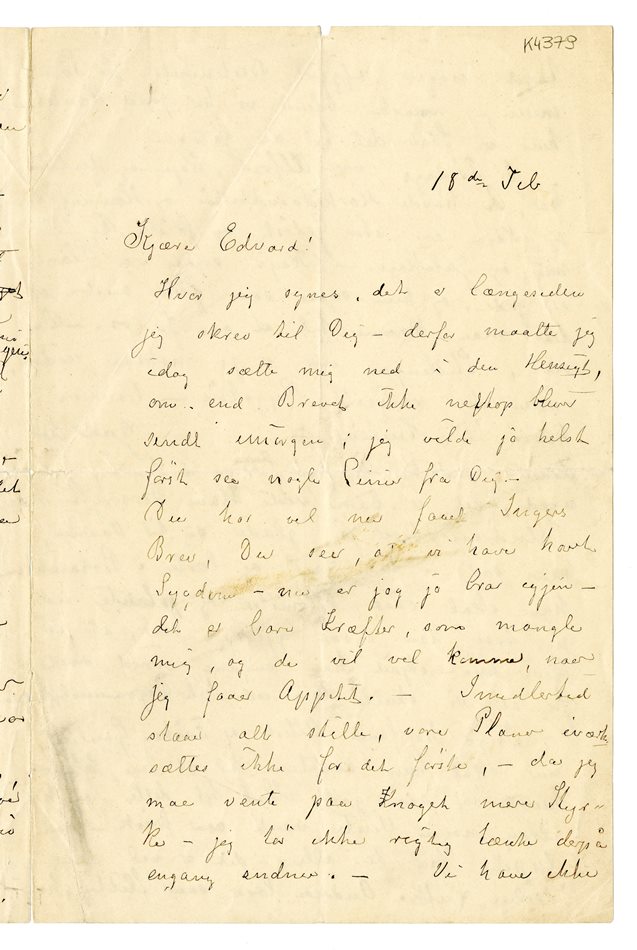 K4379
18de Feb
Kjære Edvard!
Hvor jeg synes, det er længesiden
jeg skrev til Dig – derfor maatte jeg
idag sætte mig ned i den Hensigt,
om end Brevet ikke netop blev
sendt imorgen; jeg vilde jo helst
først see nogle Linier fra Dig. –
Du har vel nu faaet Ingers
Brev, Du seer, at vi have havt
Sygdom – nu er jeg jo bra igjen –
det er bare Kræfter, som mangle
mig, og de vil vel komme, naar
jeg faaer Appetit. – Imidlertid
staaer alt stille, vore Planer iværk-
sættes ikke for det første, – da jeg
maa vente paa noget mere Styr-
ke – jeg tør ikke rigtig tænke derpå
engang endnu. – Vi have ikke